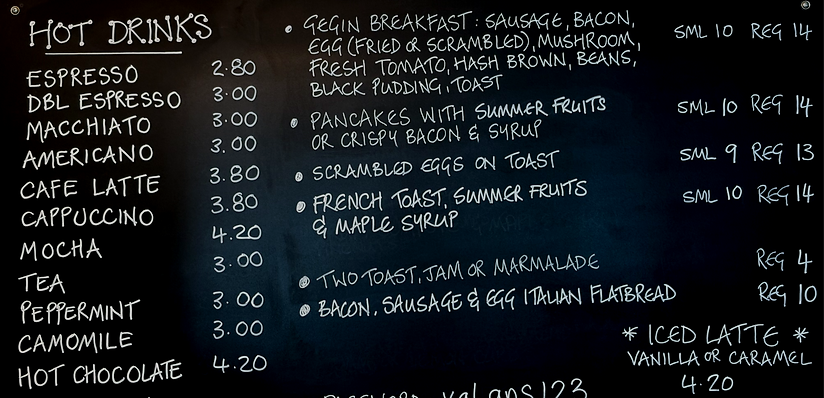 HOT DRINKS
ESPRESSO 2.80
DBL ESPRESSO 3.00
MACCHIATO 3.00
AMERICANO 3.00
CAFE LATTE 3.80
CAPPUCCINO 3.80
MOCHA 4.20
TEA 3.00
PEPPERMINT 3.00
CAMOMILE 3.00
HOT CHOCOLATE 4.20
• GEGIN BREAKFAST: SAUSAGE, BACON, SML 10 REG 14
EGG (FRIED OR SCRAMBLED), MUSHROOM,
FRESH TOMATO, HASH BROWN, BEANS,
BLACK PUDDING, TOAST
• PANCAKES WITH SUMMER FRUITS SML 10 REG 14
OR CRISPY BACON & SYRUP
• SCRAMBLED EGGS ON TOAST SML 9 REG 13
• FRENCH TOAST, SUMMER FRUITS SML 10 REG 14
& MAPLE SYRUP
• TWO TOAST, JAM OR MARMALADE REG 4
• BACON, SAUSAGE & EGG ITALIAN FLATBREAD REG 10
* ICED LATTE *
VANILLA OR CARAMEL
4.20